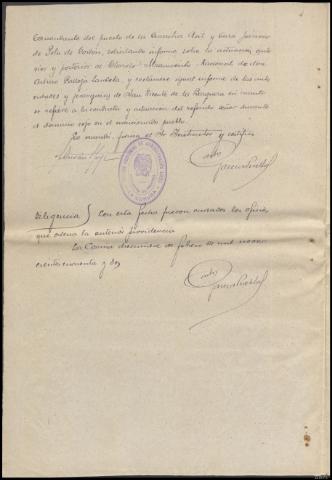 Comandante del puesto de la Guardia Civil y Cura Párroco
de Pola de Gordón, solicitando informe sobre la actuación ante-
rior y posterior al Glorioso Alzamiento Nacional de don
Arturo Pallejá, y recábense igual informe de las auto-
ridades y parroquias de San Vicente de la Barquera en cuanto
se refiere a la conducta y actuación del referido señor durante
el dominio rojo en el mencionado pueblo.
Lo mandó, firma el Sr. Instructor y certifico
LA CORUÑA
Diligencia) Con esta fecha fueron cursados los oficios
que ordena la anterior providencia
La Coruña diecinueve de febrero de mil nove-
cientos cuarenta y dos